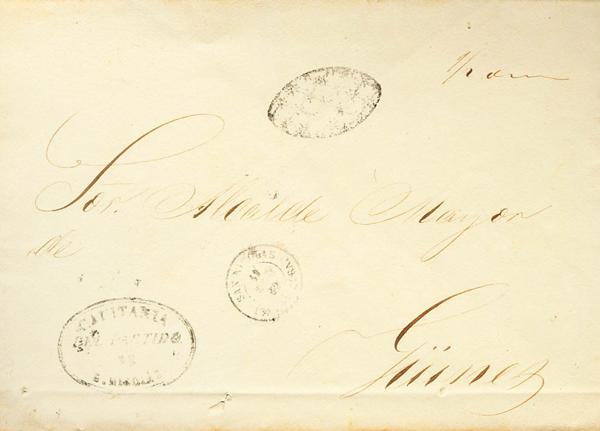 Sor. Alcalde Mayor
de
Güines
CAPITANIA
DEL PARTIDO
DE
S. NICOLAS